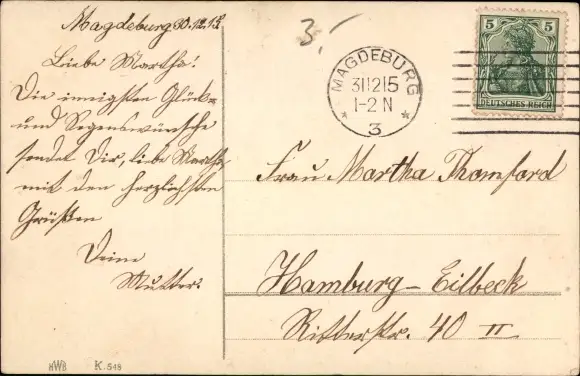 Magdeburg 30.12.15.
Liebe Martha!
Die innigsten Glück-
und Segenswünsche
sendet Dir, liebe Martha,
mit den herzlichsten
Grüßen
Deine
Mutter.
3.-
MAGDEBURG
31 12 15
1-2 N
* 3 *
5 5
DEUTSCHES REICH
Frau Martha Thomford
Hamburg-Eilbeck
Ritterstr. 40 II
HWB K. 548